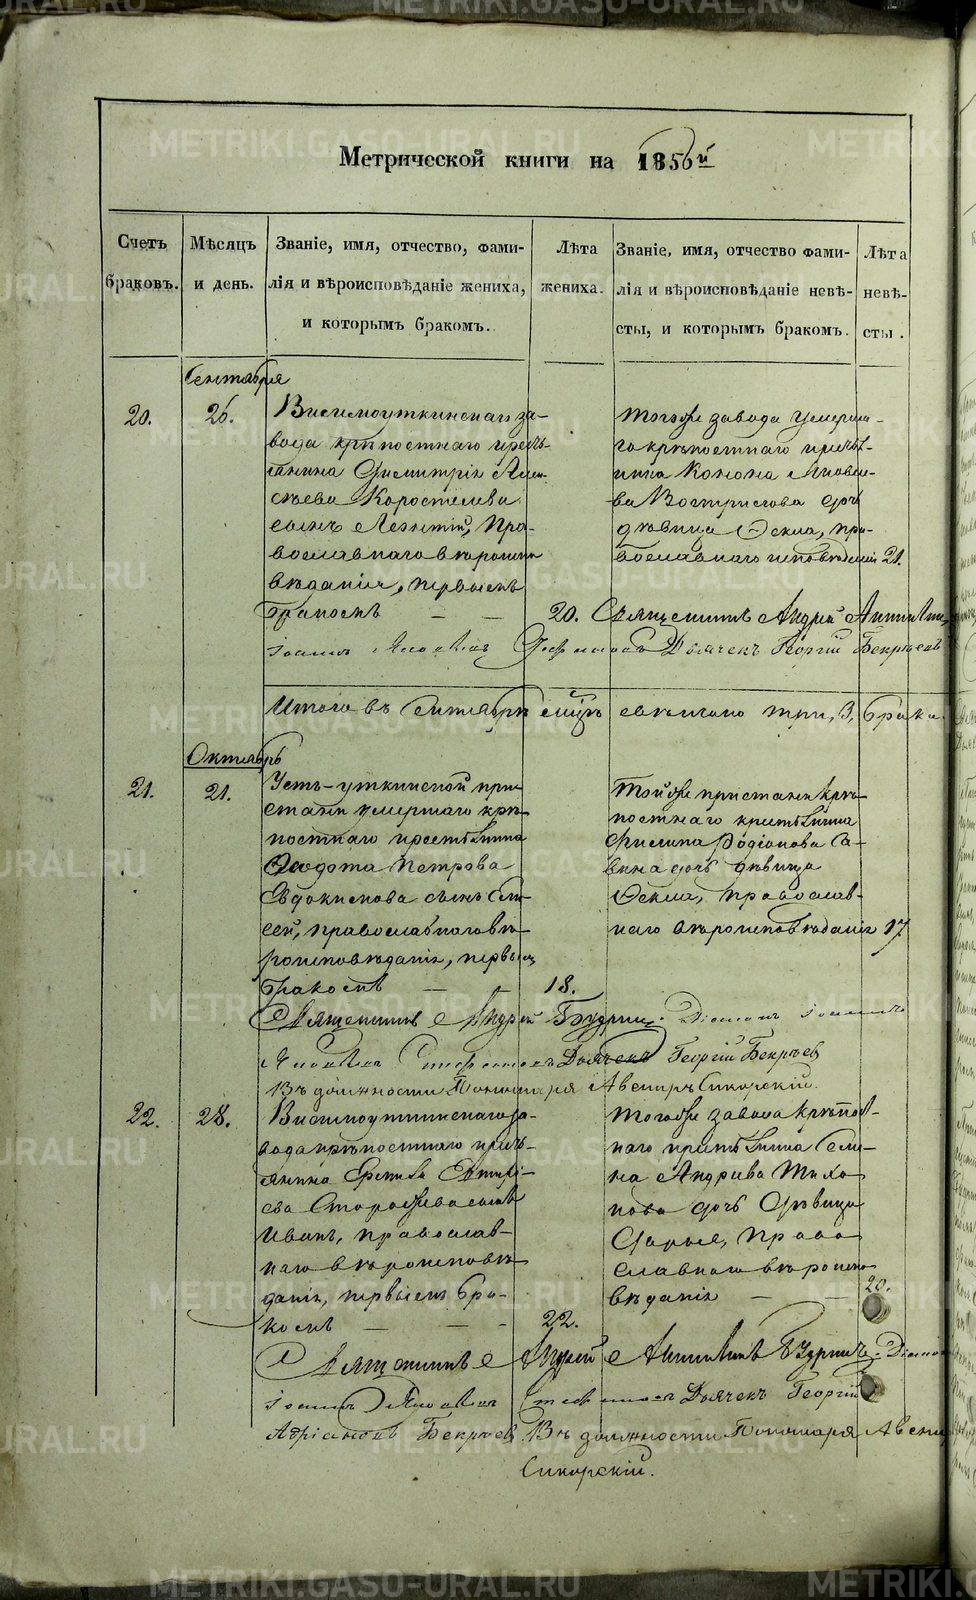 METRIKI.GASO-URAL.RU
Метрической книги на 1856й
Счетъ браковъ.
Мѣсяцъ и день.
Званіе, имя, отчество, фами-
лія и вѣроисповѣданіе жениха,
и которымъ бракомъ.
Лѣта
жениха.
Званіе, имя, отчество фами-
лія и вѣроисповѣданіе невѣ-
сты, и которымъ бракомъ.
Лѣта
невѣ-
сты.
Сентября
20.
26.
Висимоуткинскаго за-
вода крѣпостнаго кресть-
янина Димитрія Алек-
сѣева Коростелева
сынъ Леонтій, Пра-
вославнаго вѣроиспо-
вѣданія, первымъ
бракомъ
20.
Тогоже завода умерша-
го крѣпостнаго крестья-
нина Конона
Вострикова дочь
дѣвица Ѳекла, пра-
вославнаго исповѣданія
21.
Священникъ Андрей
Іоаннъ Яковлевъ Дьячекъ Георгій Бекряевъ
Итого въ Сентябрѣ мцѣ свѣнчано три, 3, брака.
Октябрь
21.
21.
Усть-уткинской при-
стани умершаго крѣ-
постнаго крестьянина
Ѳеодота Петрова
Евдокимова сынъ Ели-
сей, православнаго вѣ-
роисповѣданія, первымъ
бракомъ
18.
Тойже пристани крѣ-
постнаго крестьянина
Филипа Родіонова Са-
вина дочь дѣвица
Ѳекла, православ-
наго вѣроисповѣданія
17
Священникъ Андрей Будринъ. Діаконъ Іоаннъ
Яковлевъ Дьячекъ Георгій Бекряевъ
Въ должности Пономаря Авениръ Сикорскій.
22.
28.
Висимоуткинскаго за-
вода крѣпостнаго кресть-
янина
Сторожева сынъ
Иванъ, православ-
наго вѣроисповѣ-
данія, первымъ бра-
комъ
22.
Тогоже завода крѣпост-
наго крестьянина Семе-
на Андреева Тихо-
нова дочь дѣвица
Дарья, Право
славнаго вѣроиспо-
вѣданія
20.
Священникъ Андрей Будринъ. Діаконъ
Іоаннъ Яковлевъ Дьячекъ Георгій
Адріановъ Бекряевъ Въ должности Пономаря Авениръ
Сикорскій.